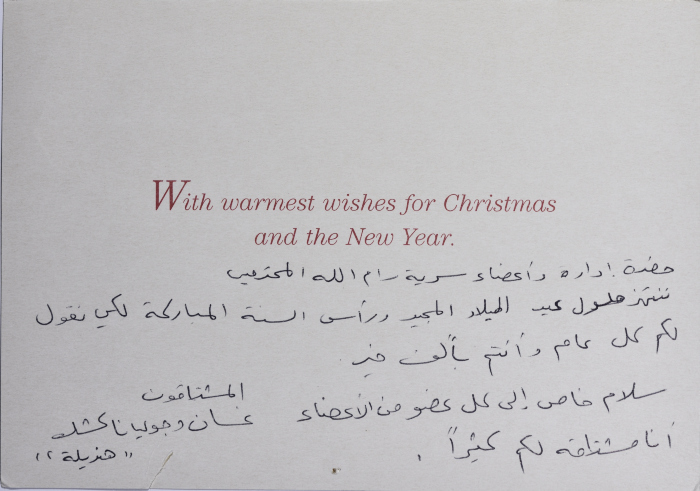 With warmest wishes for Christmas
and the New Year.
حضرة إدارة وأعضاء سرية رام الله المحترمين
ننتهز حلول عيد الميلاد المجيد ورأس السنة المباركة لكي نقول
لكم كل عام وأنتم بألف خير
سلام خاص إلى كل عضو من الأعضاء
أنا مشتاقة لكم كثيراً .
المشتاقون
غسان وجوليانا
"هذيلة"